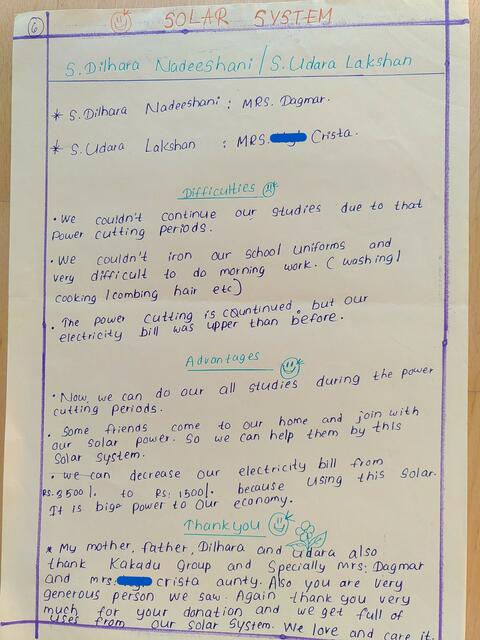 6
SOLAR SYSTEM
S. Dilhara Nadeeshani / S. Udara Lakshan
* S. Dilhara Nadeeshani : MRS. Dagmar.
* S. Udara Lakshan : MRS. Crista.
Difficulties
• We couldn't continue our studies due to that
Power cutting periods.
• We couldn't iron our school uniforms and
very difficult to do morning work. ( washing /
cooking / combing hair etc )
• The power cutting is countinued, but our
electricity bill was upper than before.
Advantages
• Now, we can do our all studies during the power
cutting periods.
• Some friends come to our home and join with
our solar power. So we can help them by this
Solar system.
• we can decrease our electricity bill from
RS. 3500/. to RS: 1500/. because using this Solar.
It is bige power to our economy.
Thank you
* My mother, father, Dilhara and udara also
thank Kakadu Group and Specially mrs: Dagmar
and mrs: crista aunty. Also you are very
generous person we saw. Again thank you very
much for your donation and we get full of
uses from our solar system. We love and care it.